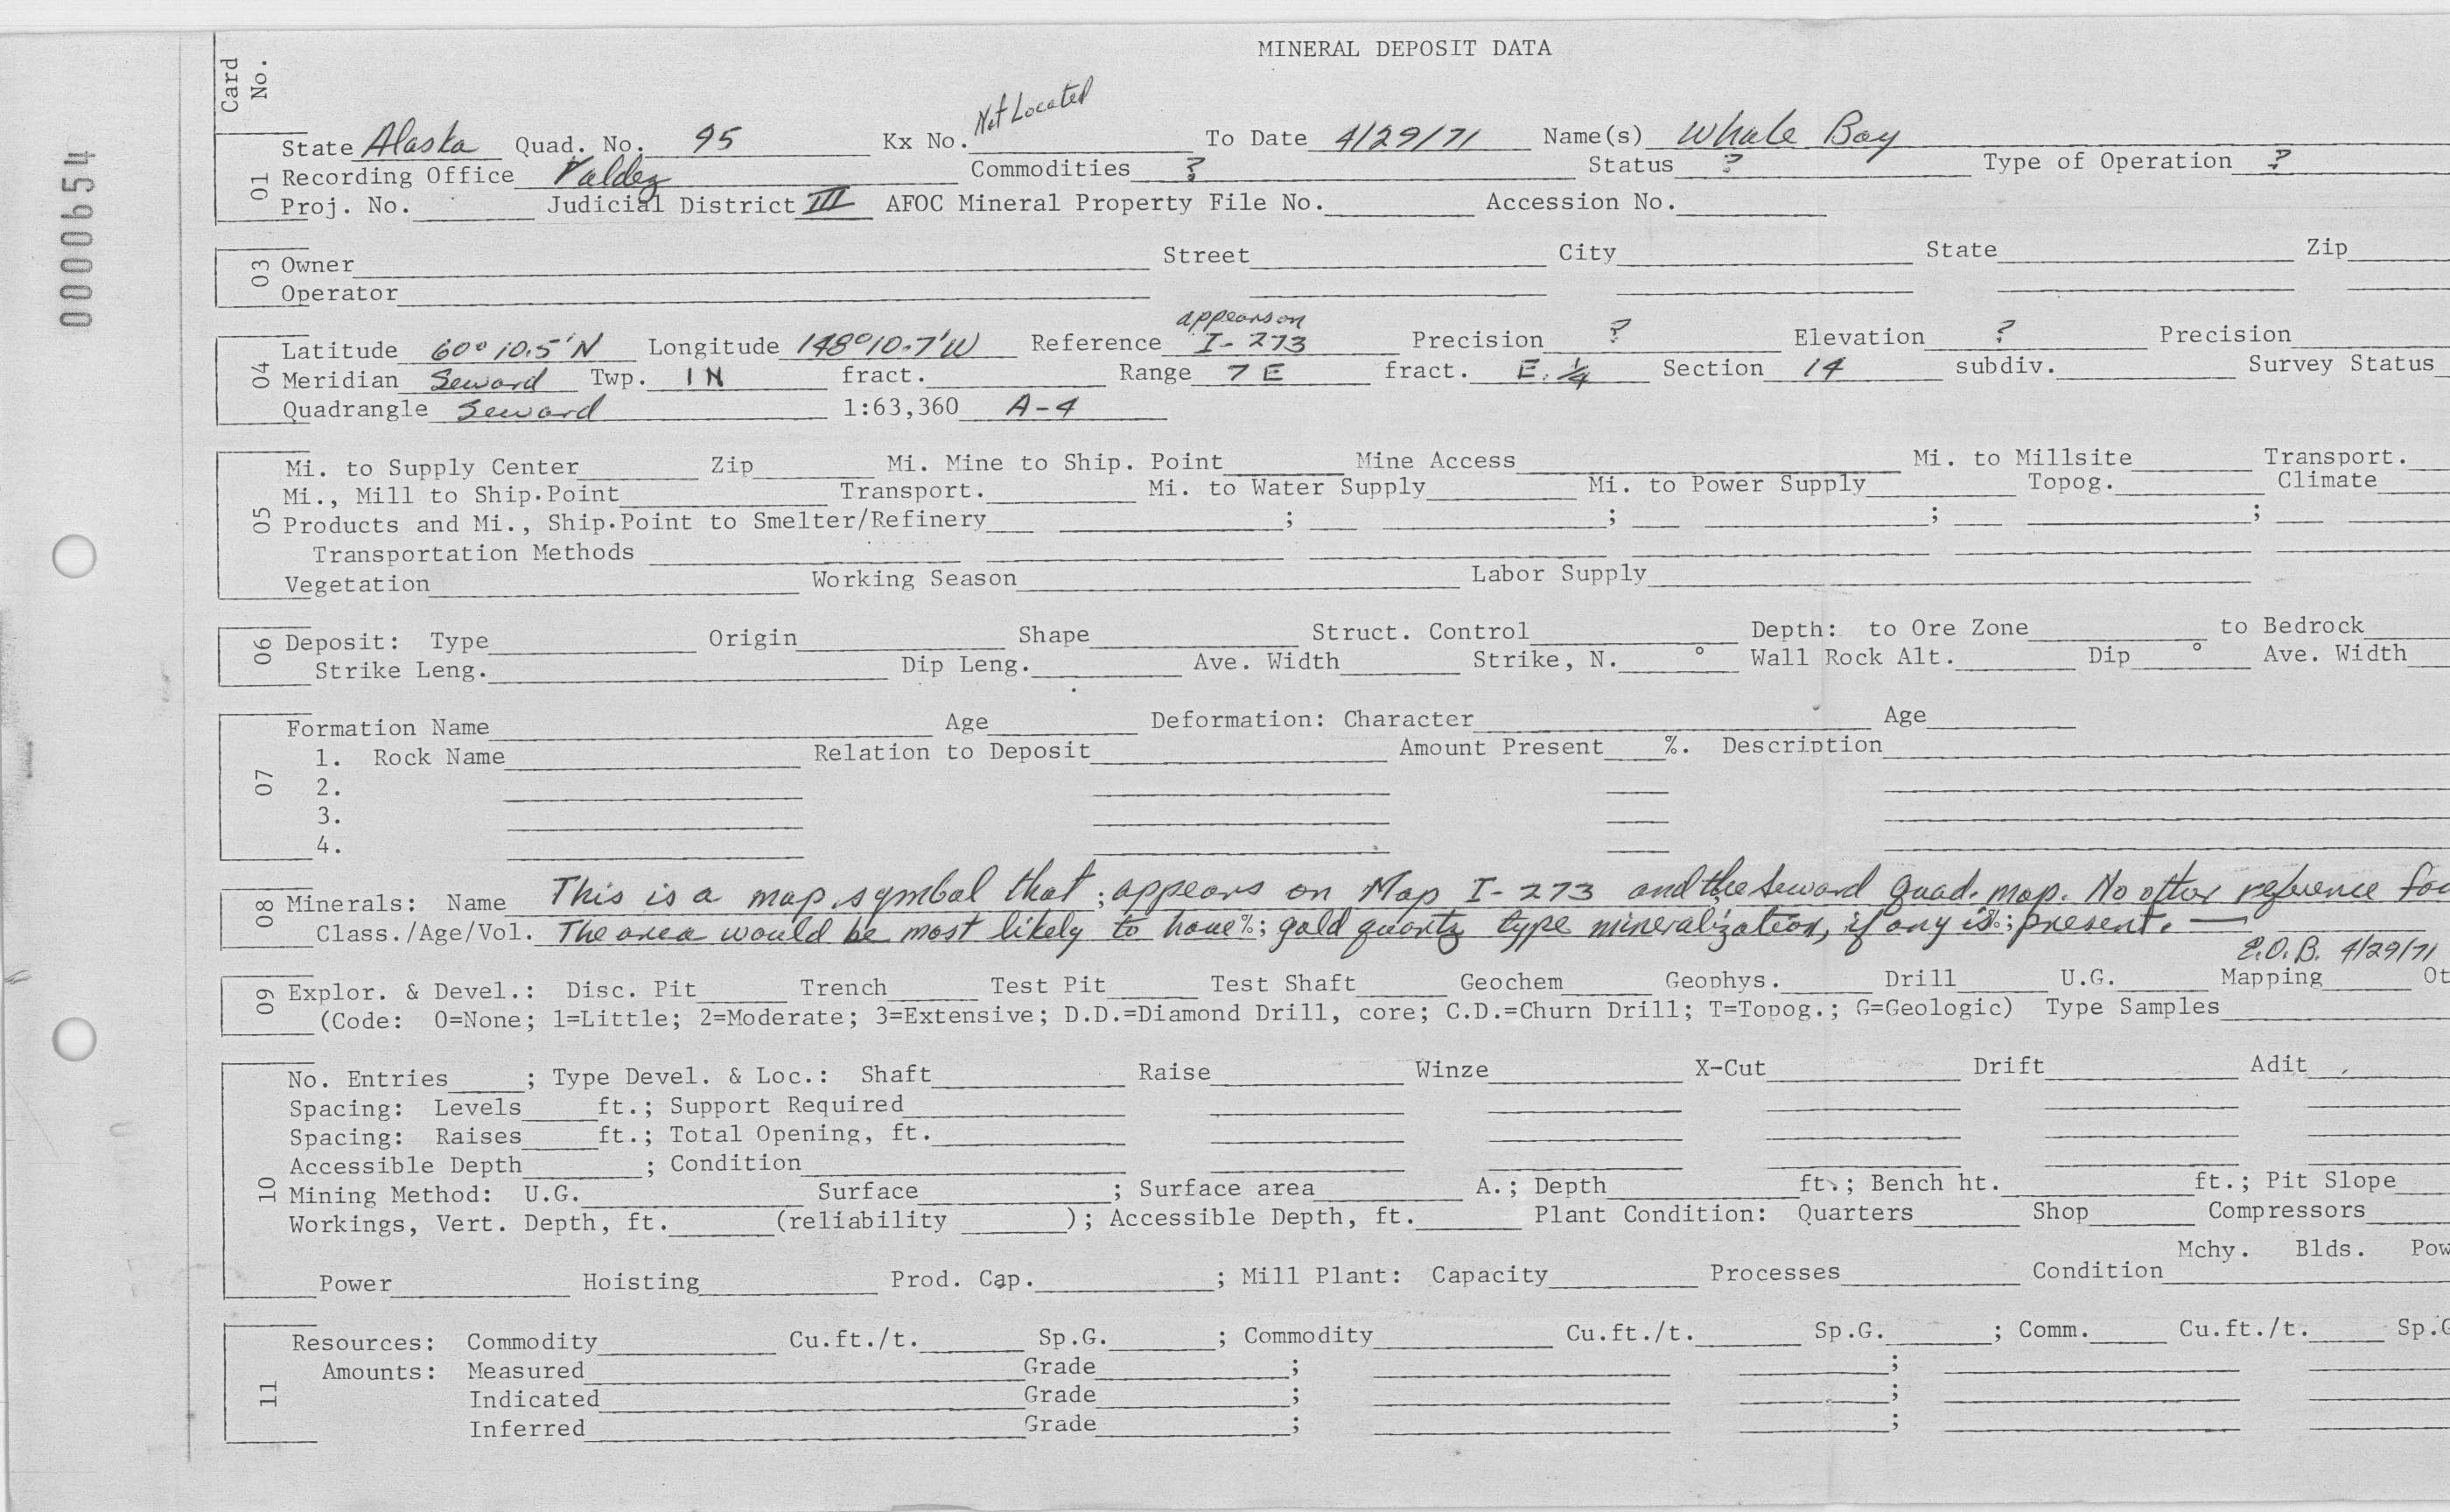 MINERAL DEPOSIT DATA
Card No.
0000654
Not Located
01 State Alaska Quad. No. 95 Kx No. To Date 4/29/71 Name(s) Whale Bay
Recording Office Valdez Commodities ? Status ? Type of Operation ?
Proj. No. Judicial District III AFOC Mineral Property File No. Accession No.
03 Owner Street City State Zip
Operator
appears on
04 Latitude 60° 10.5'N Longitude 148°10.7'W Reference I-273 Precision ? Elevation ? Precision
Meridian Seward Twp. 1N fract. Range 7E fract. E. 1/4 Section 14 subdiv. Survey Status
Quadrangle Seward 1:63,360 A-4
05 Mi. to Supply Center Zip Mi. Mine to Ship. Point Mine Access Mi. to Millsite Transport.
Mi., Mill to Ship.Point Transport. Mi. to Water Supply Mi. to Power Supply Topog. Climate
Products and Mi., Ship.Point to Smelter/Refinery ; ; ; ;
Transportation Methods
Vegetation Working Season Labor Supply
06 Deposit: Type Origin Shape Struct. Control Depth: to Ore Zone to Bedrock
Strike Leng. Dip Leng. Ave. Width Strike, N. ° Wall Rock Alt. Dip ° Ave. Width
07 Formation Name Age Deformation: Character Age
1. Rock Name Relation to Deposit Amount Present %. Description
2.
3.
4.
08 Minerals: Name This is a map symbol that ; appears on Map I-273 and the Seward Quad. map. No other reference fou
Class./Age/Vol. The area would be most likely to have %; gold quartz type mineralization, if any is %; present. —
E.O.B. 4/29/71
09 Explor. & Devel.: Disc. Pit Trench Test Pit Test Shaft Geochem Geophys. Drill U.G. Mapping Ot
(Code: 0=None; 1=Little; 2=Moderate; 3=Extensive; D.D.=Diamond Drill, core; C.D.=Churn Drill; T=Topog.; G=Geologic) Type Samples
10 No. Entries ; Type Devel. & Loc.: Shaft Raise Winze X-Cut Drift Adit
Spacing: Levels ft.; Support Required
Spacing: Raises ft.; Total Opening, ft.
Accessible Depth ; Condition
Mining Method: U.G. Surface ; Surface area A.; Depth ft.; Bench ht. ft.; Pit Slope
Workings, Vert. Depth, ft. (reliability ); Accessible Depth, ft. Plant Condition: Quarters Shop Compressors
Mchy. Blds. Pow
Power Hoisting Prod. Cap. ; Mill Plant: Capacity Processes Condition
11 Resources: Commodity Cu.ft./t. Sp.G. ; Commodity Cu.ft./t. Sp.G. ; Comm. Cu.ft./t. Sp.G
Amounts: Measured Grade ; ;
Indicated Grade ; ;
Inferred Grade ; ;